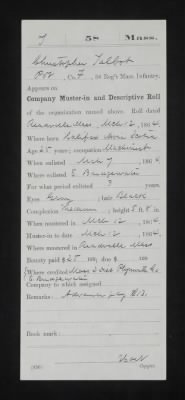 T 58 Mass.
Christopher Talbot
Pvt, Co. F, 58 Reg't Mass. Infantry.
Appears on
Company Muster-in and Descriptive Roll
of the organization named above. Roll dated
Readville Mass, Mch 12, 1864.
Where born Halifax Nova Scotia
Age 25 years; occupation Machinist
When enlisted Mch 7, 1864
Where enlisted E. Bridgewater
For what period enlisted 3 years.
Eyes ; hair Black
Complexion ; height 5 ft. 8 in.
When mustered in Mch 12, 1864
Muster-in to date Mch 12, 1864
Where mustered in Readville Mass
Bounty paid $ 25 100; due $ 100
Where credited Mass Plymouth Co
E. Bridgewater
Company to which assigned
Remarks: Advance pay $13.
Book mark:
Copyist.